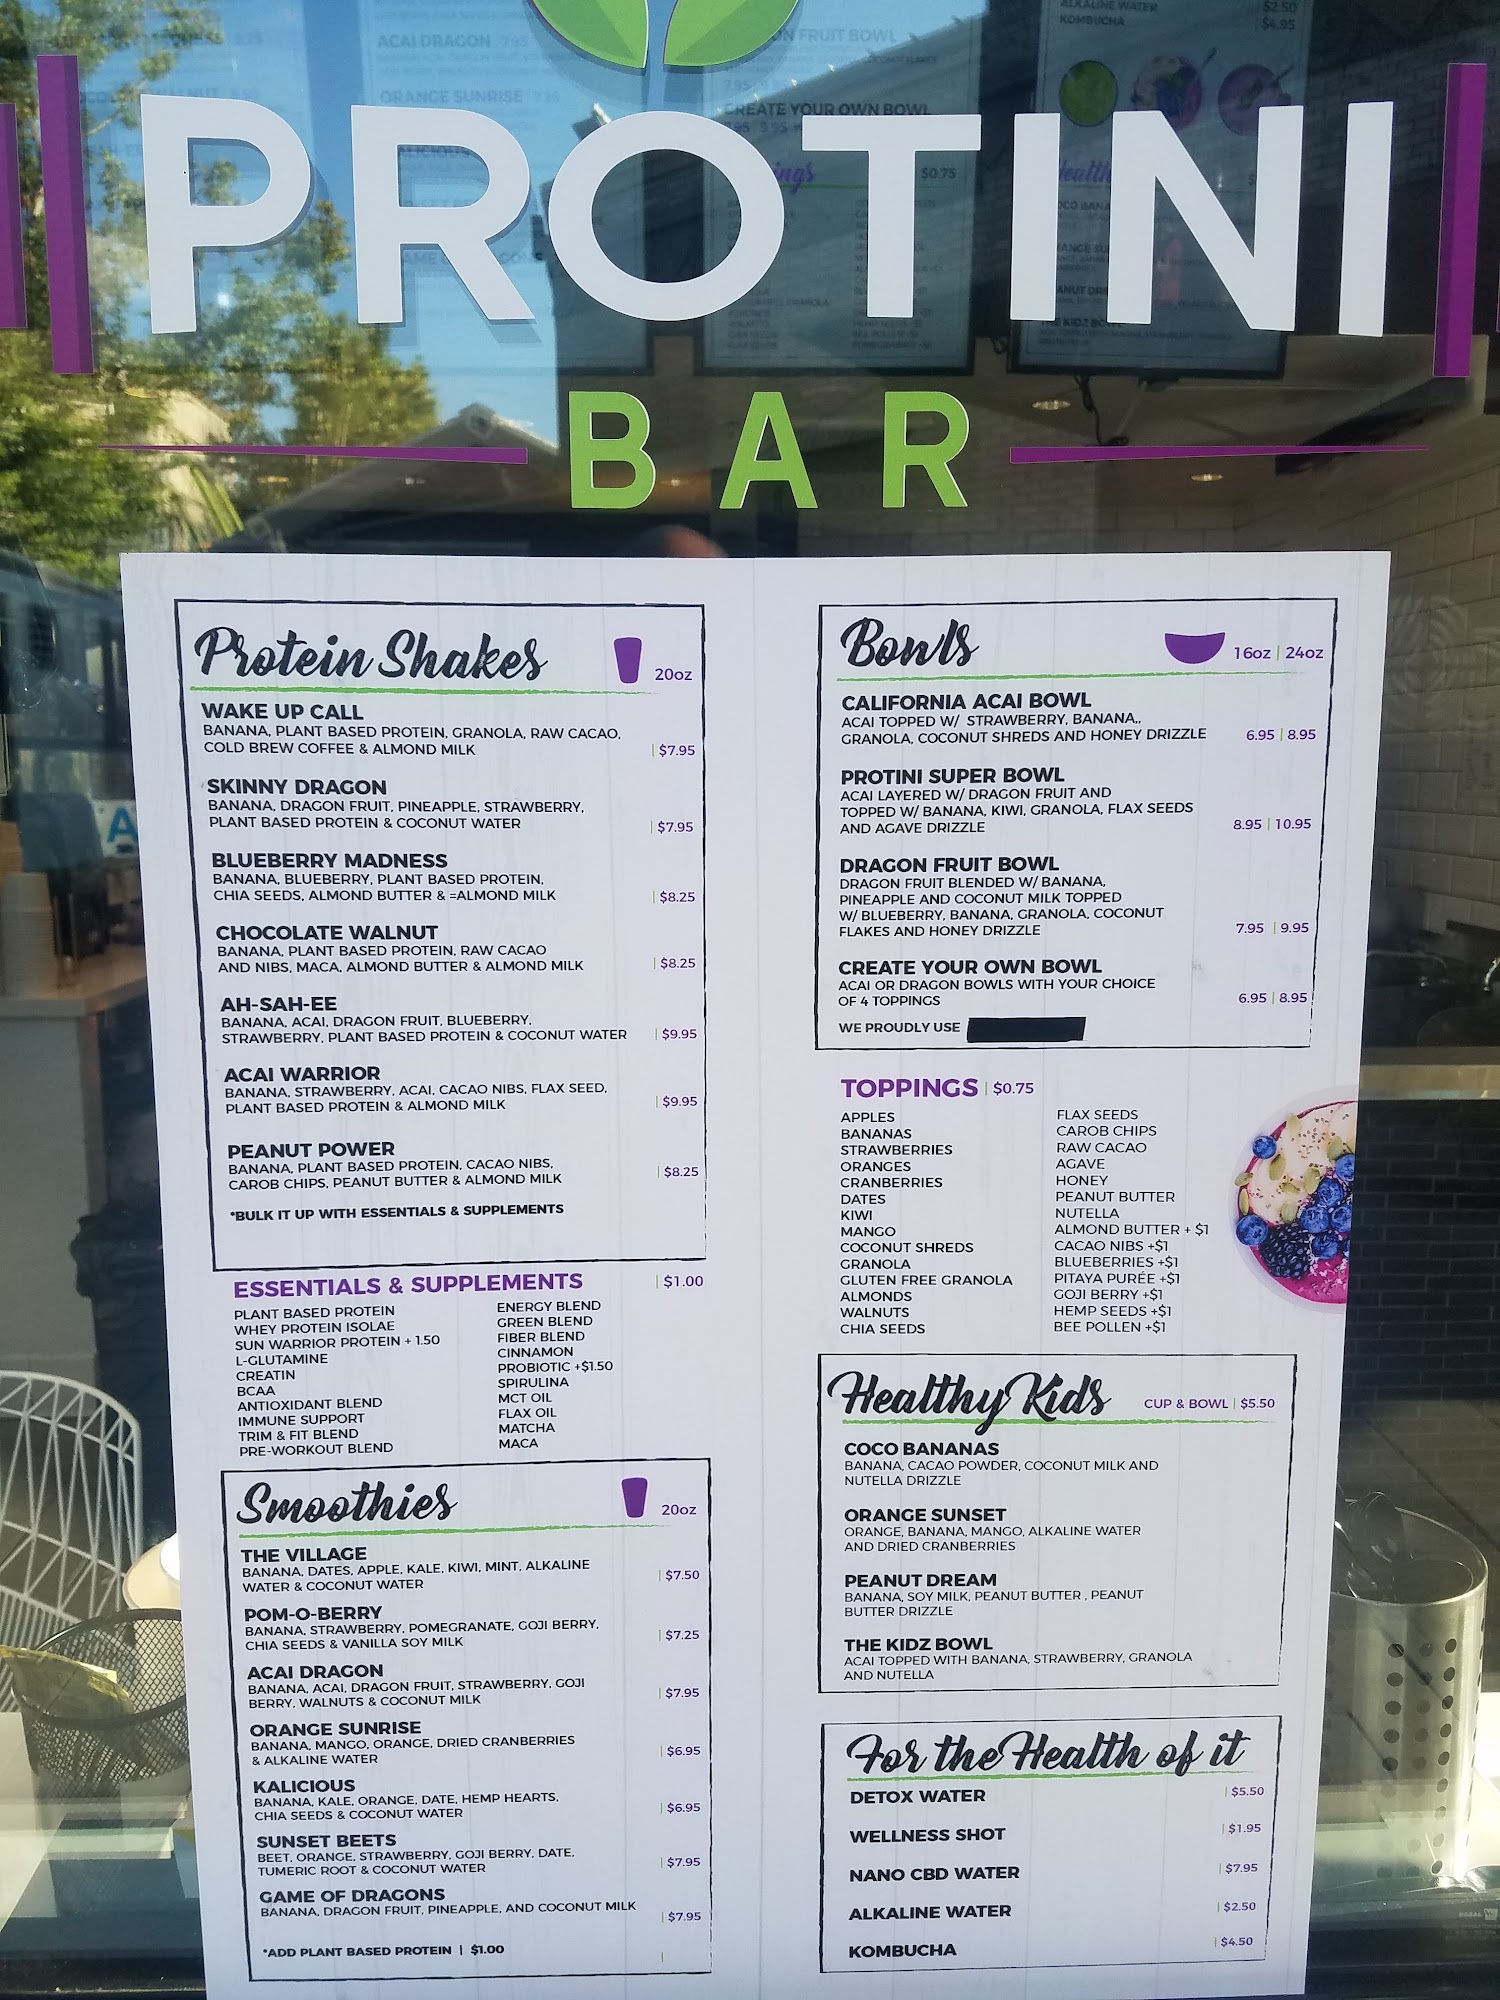 ALKALINE WATER $2.50
KOMBUCHA $4.95
ACAI DRAGON 7.95
N FRUIT BOWL
7.95
ORANGE SUNRISE 7.25
CREATE YOUR OWN BOWL
$0.75
PROTINI
BAR
Protein Shakes 20oz
WAKE UP CALL
BANANA, PLANT BASED PROTEIN, GRANOLA, RAW CACAO,
COLD BREW COFFEE & ALMOND MILK | $7.95
SKINNY DRAGON
BANANA, DRAGON FRUIT, PINEAPPLE, STRAWBERRY,
PLANT BASED PROTEIN & COCONUT WATER | $7.95
BLUEBERRY MADNESS
BANANA, BLUEBERRY, PLANT BASED PROTEIN,
CHIA SEEDS, ALMOND BUTTER & =ALMOND MILK | $8.25
CHOCOLATE WALNUT
BANANA, PLANT BASED PROTEIN, RAW CACAO
AND NIBS, MACA, ALMOND BUTTER & ALMOND MILK | $8.25
AH-SAH-EE
BANANA, ACAI, DRAGON FRUIT, BLUEBERRY,
STRAWBERRY, PLANT BASED PROTEIN & COCONUT WATER | $9.95
ACAI WARRIOR
BANANA, STRAWBERRY, ACAI, CACAO NIBS, FLAX SEED,
PLANT BASED PROTEIN & ALMOND MILK | $9.95
PEANUT POWER
BANANA, PLANT BASED PROTEIN, CACAO NIBS,
CAROB CHIPS, PEANUT BUTTER & ALMOND MILK | $8.25
*BULK IT UP WITH ESSENTIALS & SUPPLEMENTS
ESSENTIALS & SUPPLEMENTS | $1.00
PLANT BASED PROTEIN
WHEY PROTEIN ISOLAE
SUN WARRIOR PROTEIN + 1.50
L-GLUTAMINE
CREATIN
BCAA
ANTIOXIDANT BLEND
IMMUNE SUPPORT
TRIM & FIT BLEND
PRE-WORKOUT BLEND
ENERGY BLEND
GREEN BLEND
FIBER BLEND
CINNAMON
PROBIOTIC +$1.50
SPIRULINA
MCT OIL
FLAX OIL
MATCHA
MACA
Smoothies 20oz
THE VILLAGE
BANANA, DATES, APPLE, KALE, KIWI, MINT, ALKALINE
WATER & COCONUT WATER | $7.50
POM-O-BERRY
BANANA, STRAWBERRY, POMEGRANATE, GOJI BERRY,
CHIA SEEDS & VANILLA SOY MILK | $7.25
ACAI DRAGON
BANANA, ACAI, DRAGON FRUIT, STRAWBERRY, GOJI
BERRY, WALNUTS & COCONUT MILK | $7.95
ORANGE SUNRISE
BANANA, MANGO, ORANGE, DRIED CRANBERRIES
& ALKALINE WATER | $6.95
KALICIOUS
BANANA, KALE, ORANGE, DATE, HEMP HEARTS,
CHIA SEEDS & COCONUT WATER | $6.95
SUNSET BEETS
BEET, ORANGE, STRAWBERRY, GOJI BERRY, DATE,
TUMERIC ROOT & COCONUT WATER | $7.95
GAME OF DRAGONS
BANANA, DRAGON FRUIT, PINEAPPLE, AND COCONUT MILK | $7.95
*ADD PLANT BASED PROTEIN | $1.00
Bowls 16oz | 24oz
CALIFORNIA ACAI BOWL
ACAI TOPPED W/ STRAWBERRY, BANANA,,
GRANOLA, COCONUT SHREDS AND HONEY DRIZZLE 6.95 | 8.95
PROTINI SUPER BOWL
ACAI LAYERED W/ DRAGON FRUIT AND
TOPPED W/ BANANA, KIWI, GRANOLA, FLAX SEEDS
AND AGAVE DRIZZLE 8.95 | 10.95
DRAGON FRUIT BOWL
DRAGON FRUIT BLENDED W/ BANANA,
PINEAPPLE AND COCONUT MILK TOPPED
W/ BLUEBERRY, BANANA, GRANOLA, COCONUT
FLAKES AND HONEY DRIZZLE 7.95 | 9.95
CREATE YOUR OWN BOWL
ACAI OR DRAGON BOWLS WITH YOUR CHOICE
OF 4 TOPPINGS 6.95 | 8.95
WE PROUDLY USE
TOPPINGS | $0.75
APPLES
BANANAS
STRAWBERRIES
ORANGES
CRANBERRIES
DATES
KIWI
MANGO
COCONUT SHREDS
GRANOLA
GLUTEN FREE GRANOLA
ALMONDS
WALNUTS
CHIA SEEDS
FLAX SEEDS
CAROB CHIPS
RAW CACAO
AGAVE
HONEY
PEANUT BUTTER
NUTELLA
ALMOND BUTTER + $1
CACAO NIBS +$1
BLUEBERRIES +$1
PITAYA PURÉE +$1
GOJI BERRY +$1
HEMP SEEDS +$1
BEE POLLEN +$1
Healthy Kids CUP & BOWL | $5.50
COCO BANANAS
BANANA, CACAO POWDER, COCONUT MILK AND
NUTELLA DRIZZLE
ORANGE SUNSET
ORANGE, BANANA, MANGO, ALKALINE WATER
AND DRIED CRANBERRIES
PEANUT DREAM
BANANA, SOY MILK, PEANUT BUTTER , PEANUT
BUTTER DRIZZLE
THE KIDZ BOWL
ACAI TOPPED WITH BANANA, STRAWBERRY, GRANOLA
AND NUTELLA
For the Health of it
DETOX WATER | $5.50
WELLNESS SHOT | $1.95
NANO CBD WATER | $7.95
ALKALINE WATER | $2.50
KOMBUCHA | $4.50